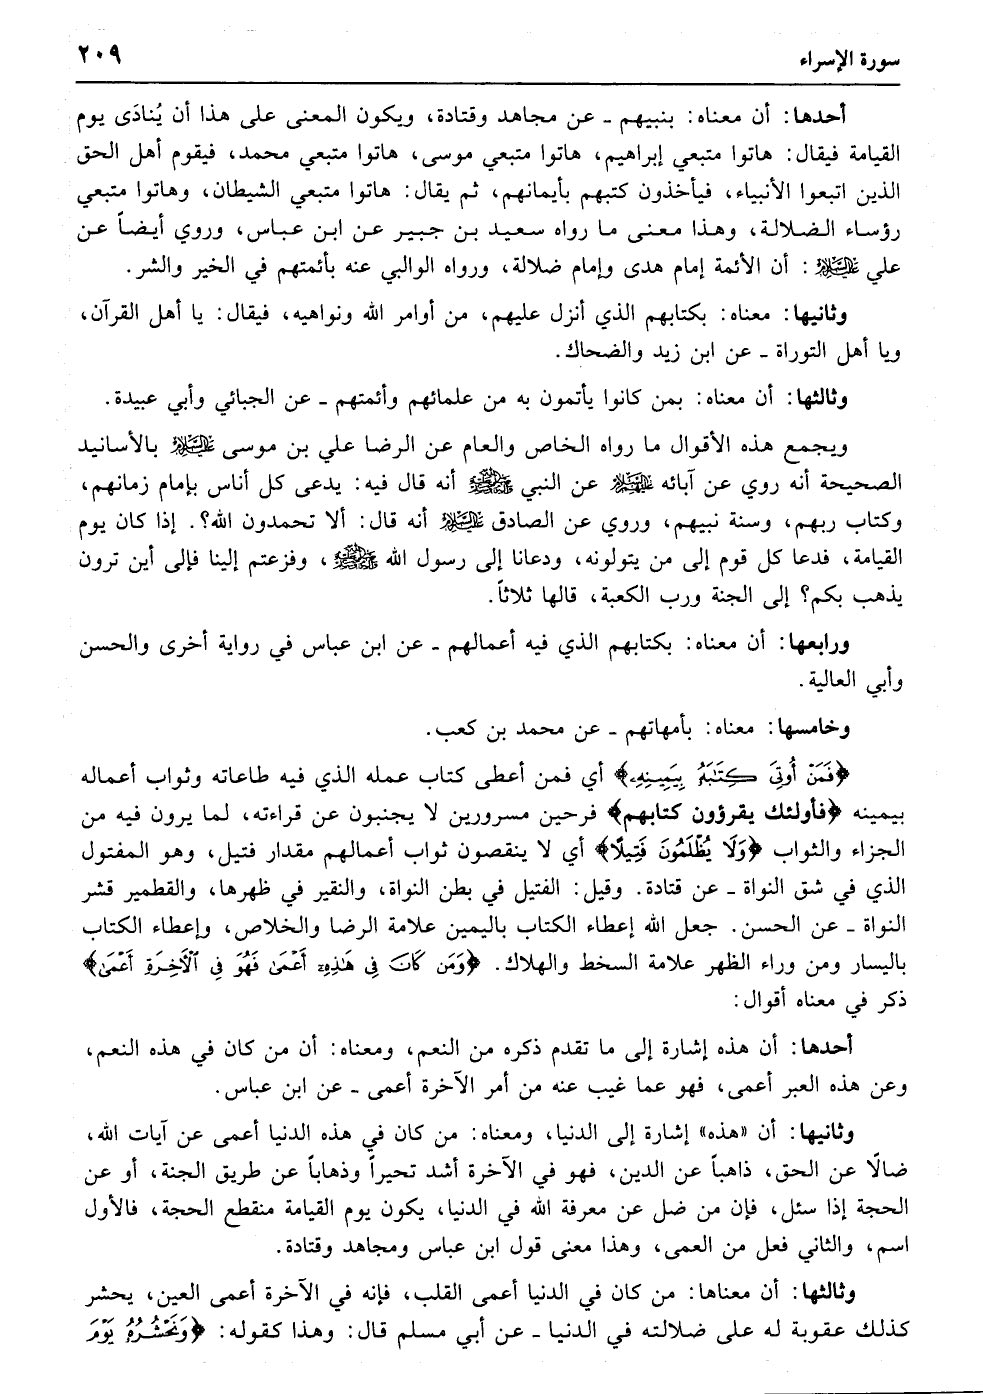 سورة الإسراء ٢٠٩
أحدها: أن معناه: بنبيهم ـ عن مجاهد وقتادة، ويكون المعنى على هذا أن يُنادَى يوم
القيامة فيقال: هاتوا متبعي إبراهيم، هاتوا متبعي موسى، هاتوا متبعي محمد، فيقوم أهل الحق
الذين اتبعوا الأنبياء، فيأخذون كتبهم بأيمانهم، ثم يقال: هاتوا متبعي الشيطان، وهاتوا متبعي
رؤساء الضلالة، وهذا معنى ما رواه سعيد بن جبير عن ابن عباس، وروي أيضاً عن
علي عليه السلام: أن الأئمة إمام هدى وإمام ضلالة، ورواه الوالبي عنه بأئمتهم في الخير والشر.
وثانيها: معناه: بكتابهم الذي أنزل عليهم، من أوامر الله ونواهيه، فيقال: يا أهل القرآن،
ويا أهل التوراة ـ عن ابن زيد والضحاك.
وثالثها: أن معناه: بمن كانوا يأتمون به من علمائهم وأئمتهم ـ عن الجبائي وأبي عبيدة.
ويجمع هذه الأقوال ما رواه الخاص والعام عن الرضا علي بن موسى عليه السلام بالأسانيد
الصحيحة أنه روي عن آبائه عليهم السلام عن النبي ﷺ أنه قال فيه: يدعى كل أناس بإمام زمانهم،
وكتاب ربهم، وسنة نبيهم، وروي عن الصادق عليه السلام أنه قال: ألا تحمدون الله؟. إذا كان يوم
القيامة، فدعا كل قوم إلى من يتولونه، ودعانا إلى رسول الله ﷺ، وفزعتم إلينا فإلى أين ترون
يذهب بكم؟ إلى الجنة ورب الكعبة، قالها ثلاثاً.
ورابعها: أن معناه: بكتابهم الذي فيه أعمالهم ـ عن ابن عباس في رواية أخرى والحسن
وأبي العالية.
وخامسها: معناه: بأمهاتهم ـ عن محمد بن كعب.
﴿فَمَنْ أُوتِيَ كِتَٰبَهُۥ بِيَمِينِهِۦ﴾ أي فمن أعطى كتاب عمله الذي فيه طاعاته وثواب أعماله
بيمينه ﴿فأولئك يقرؤون كتابهم﴾ فرحين مسرورين لا يجنبون عن قراءته، لما يرون فيه من
الجزاء والثواب ﴿وَلَا يُظْلَمُونَ فَتِيلًا﴾ أي لا ينقصون ثواب أعمالهم مقدار فتيل، وهو المفتول
الذي في شق النواة ـ عن قتادة. وقيل: الفتيل في بطن النواة، والنقير في ظهرها، والقطمير قشر
النواة ـ عن الحسن. جعل الله إعطاء الكتاب باليمين علامة الرضا والخلاص، وإعطاء الكتاب
باليسار ومن وراء الظهر علامة السخط والهلاك. ﴿وَمَن كَانَ فِي هَٰذِهِۦٓ أَعْمَىٰ فَهُوَ فِي ٱلْآخِرَةِ أَعْمَىٰ﴾
ذكر في معناه أقوال:
أحدها: أن هذه إشارة إلى ما تقدم ذكره من النعم، ومعناه: أن من كان في هذه النعم،
وعن هذه العبر أعمى، فهو عما غيب عنه من أمر الآخرة أعمى ـ عن ابن عباس.
وثانيها: أن «هذه» إشارة إلى الدنيا، ومعناه: من كان في هذه الدنيا أعمى عن آيات الله،
ضالًا عن الحق، ذاهباً عن الدين، فهو في الآخرة أشد تحيراً وذهاباً عن طريق الجنة، أو عن
الحجة إذا سئل، فإن من ضل عن معرفة الله في الدنيا، يكون يوم القيامة منقطع الحجة، فالأول
اسم، والثاني فعل من العمى، وهذا معنى قول ابن عباس ومجاهد وقتادة.
وثالثها: أن معناها: من كان في الدنيا أعمى القلب، فإنه في الآخرة أعمى العين، يحشر
كذلك عقوبة له على ضلالته في الدنيا ـ عن أبي مسلم قال: وهذا كقوله: ﴿وَنَحْشُرُهُۥ يَوْمَ